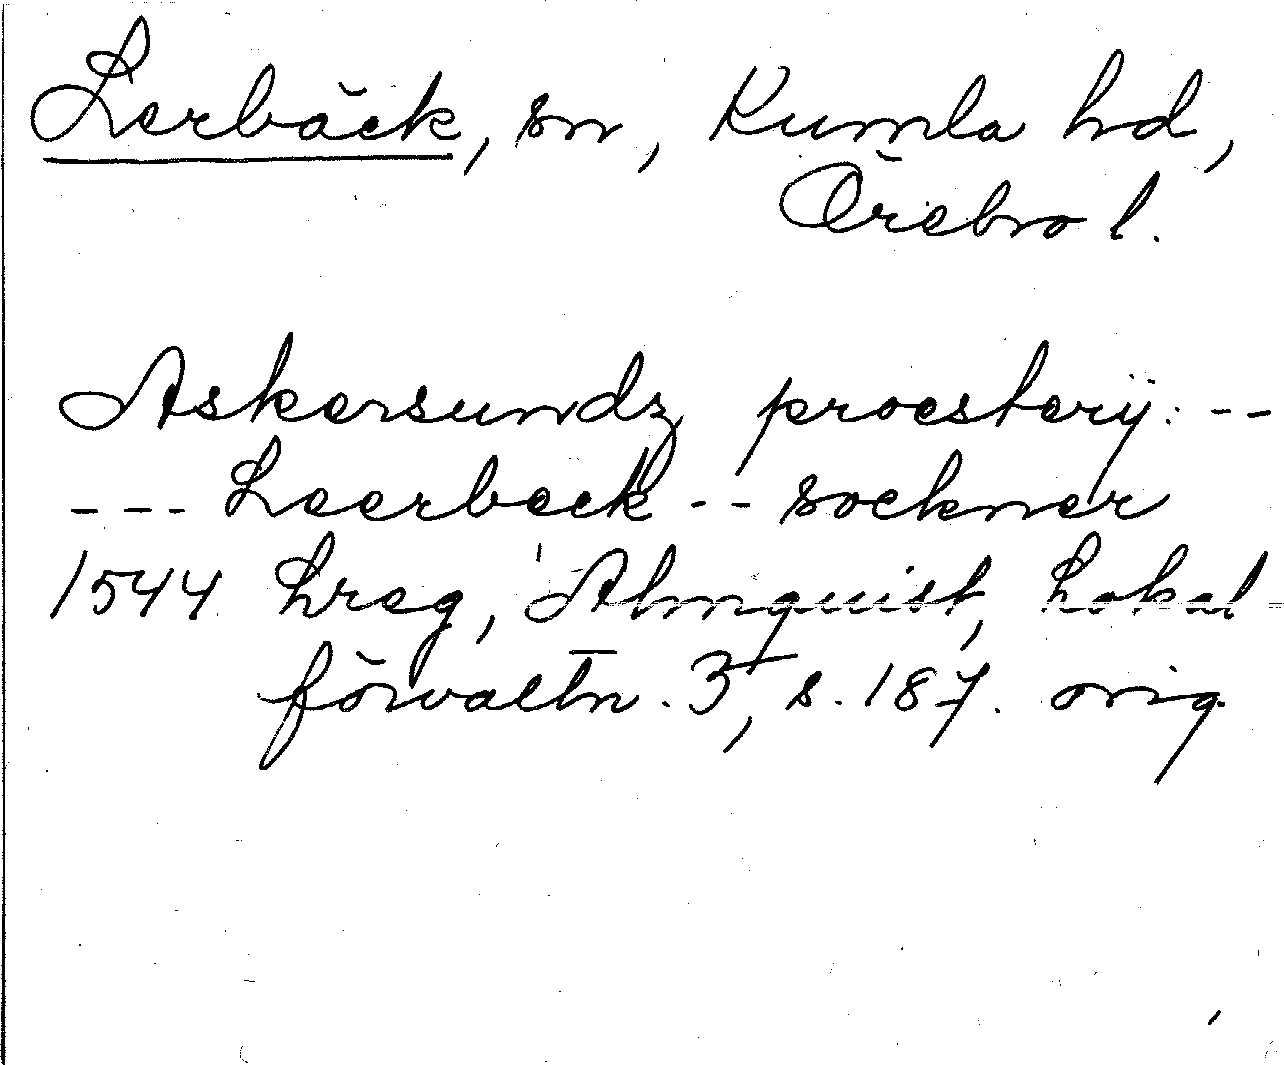 Lerbäck, sn, Kumla hd,
Örebro l.
Askersundz proestery: --
--- Leerbeck -- sockner
1544 Lreg, Almquist, Lokal-
förvaltn. 3, s. 187. orig.